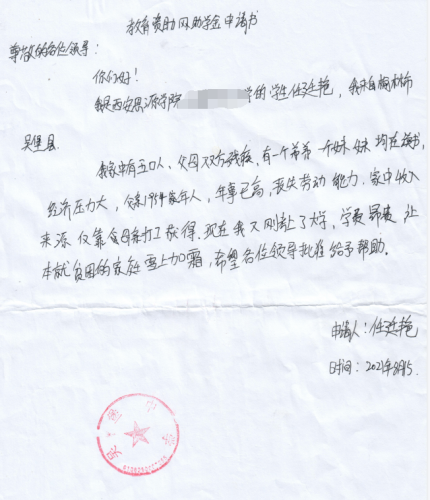 教育资助网助学金申请书
尊敬的各位领导:
你们好!
我是西安思源学院 学的学生任延艳,我来自榆林市
吴堡县.
我家中有五口人、父母双方残疾,有一个弟弟一个妹妹均在读书,
经济压力大,父亲 年老年人,年事已高,丧失劳动能力.家中收入
来源仅靠父母务打工获得.现在我又刚上了大学,学费昂贵,让
本就贫困的家庭雪上加霜,希望各位领导批准给予帮助.
申请人:任延艳
时间:2021年8月15